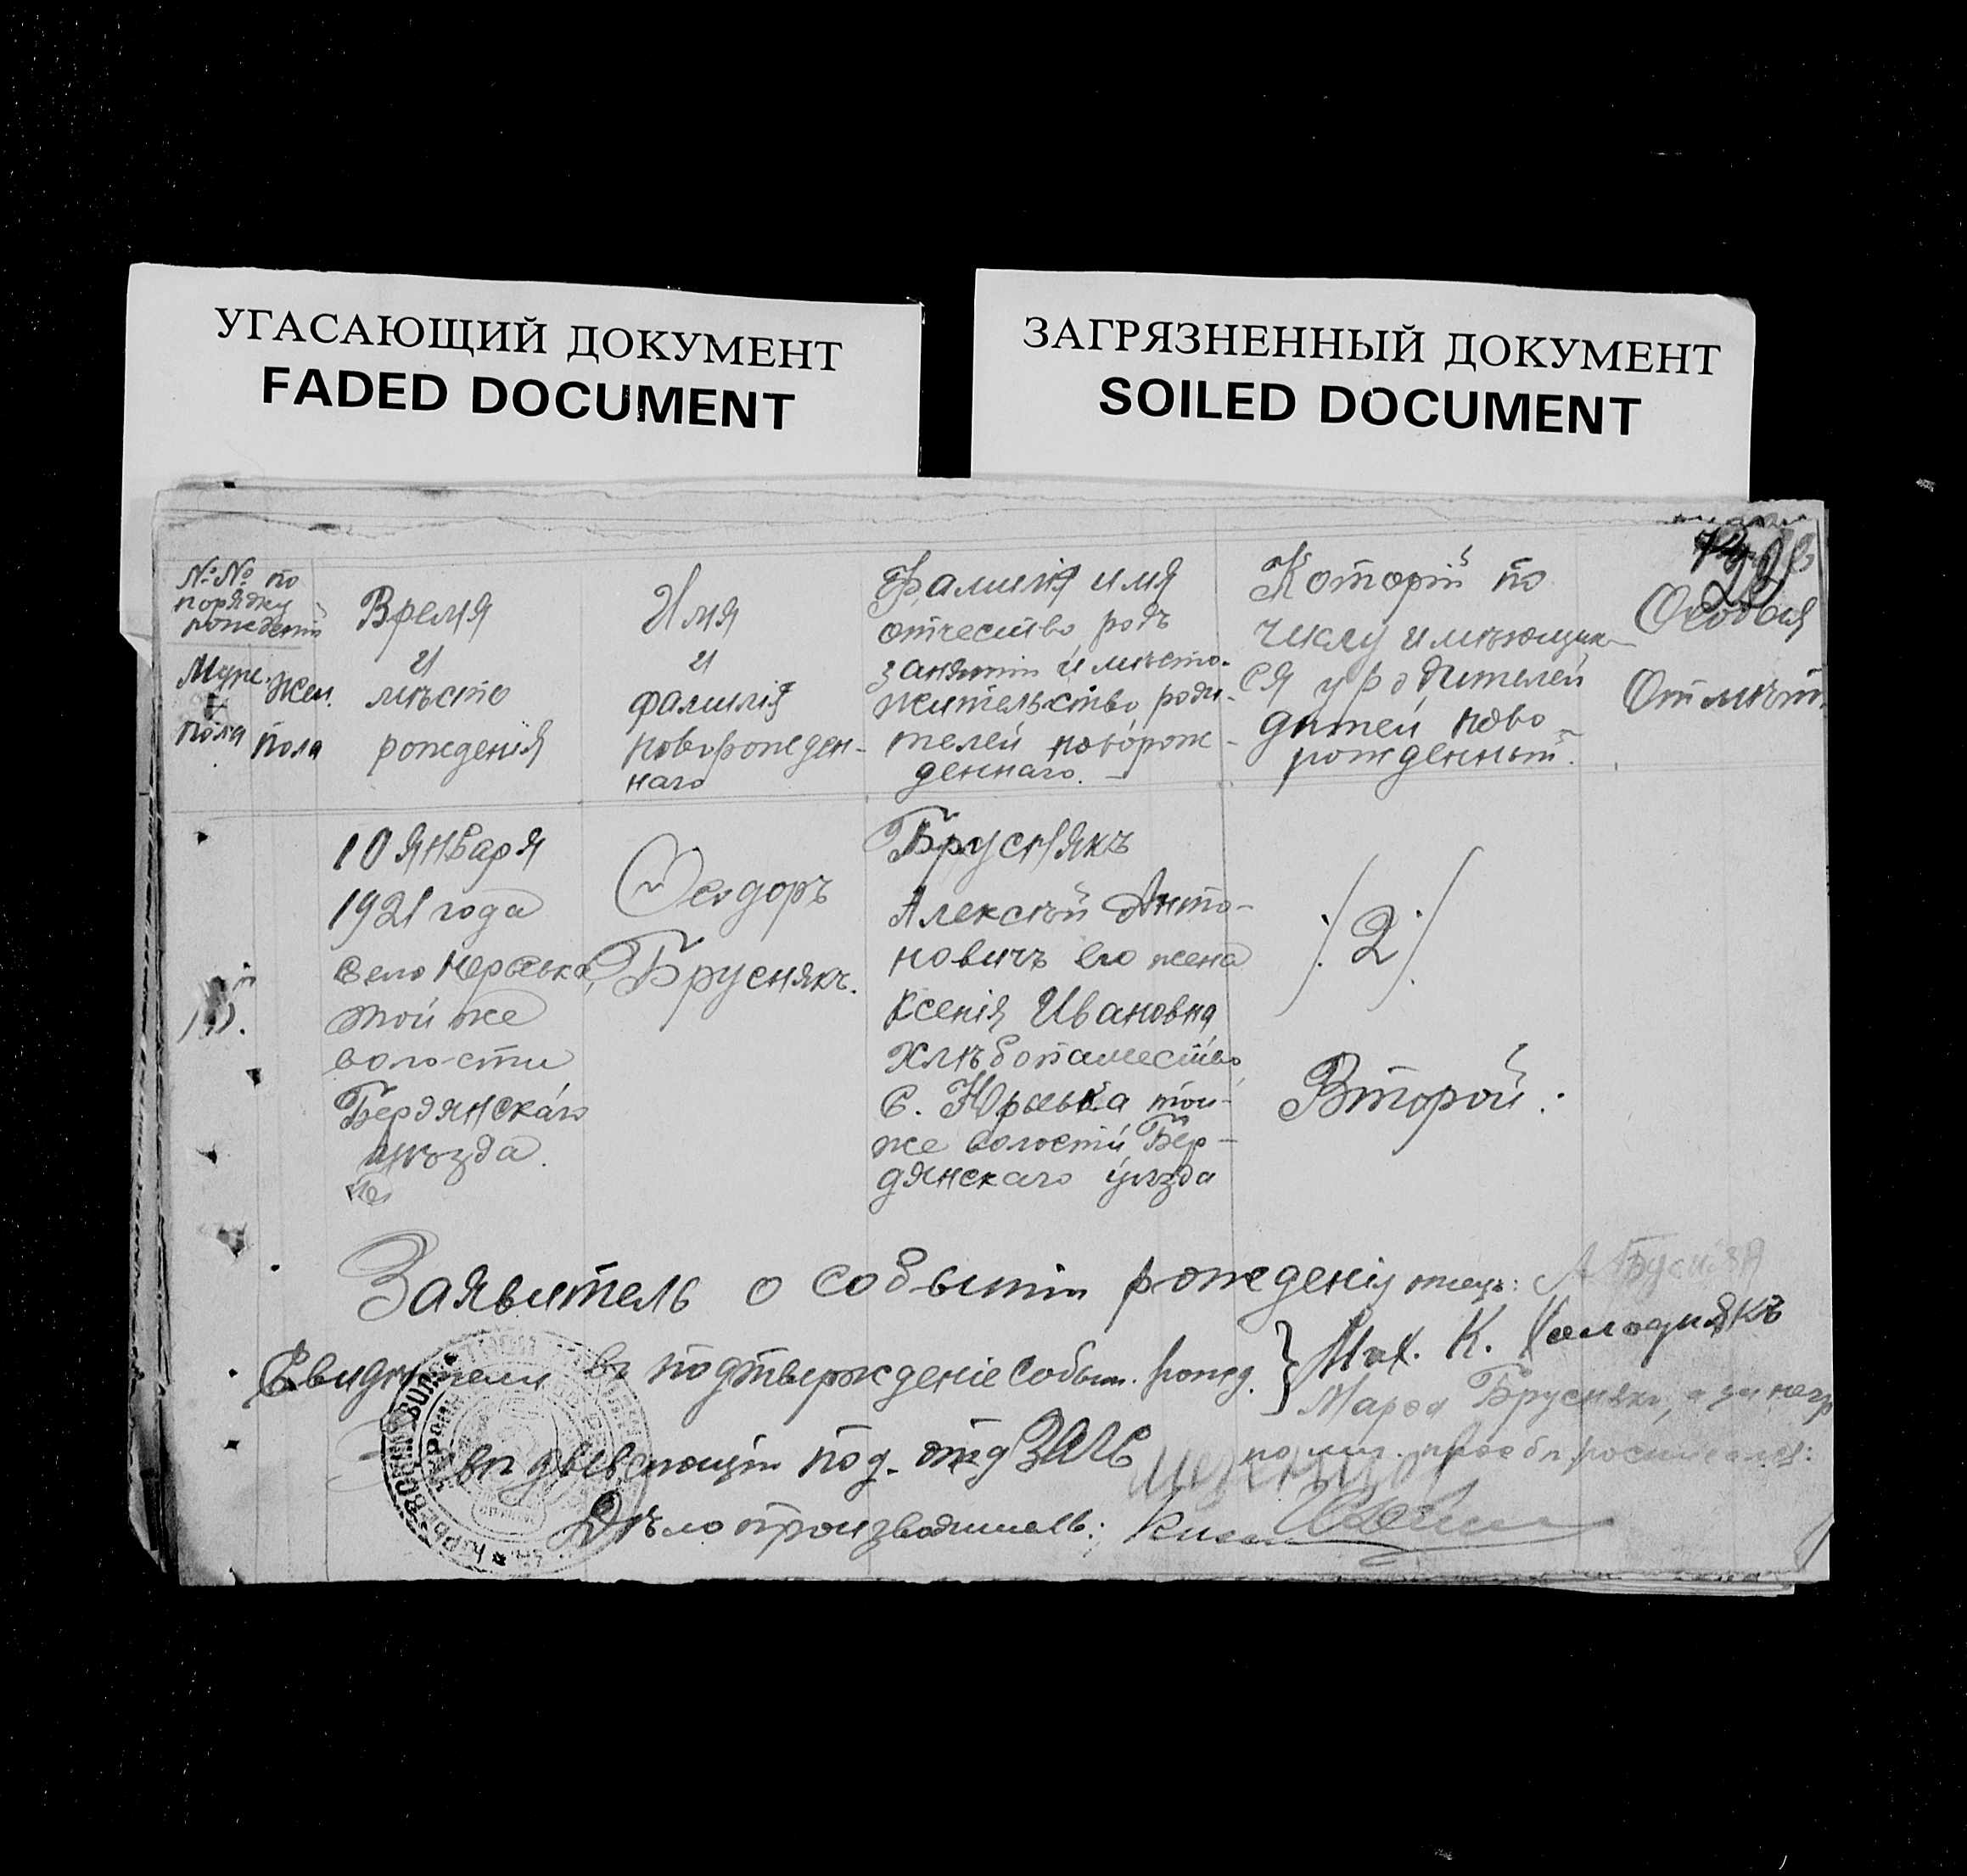 УГАСАЮЩИЙ ДОКУМЕНТ
FADED DOCUMENT
ЗАГРЯЗНЕННЫЙ ДОКУМЕНТ
SOILED DOCUMENT
№№ по
порядку
рожденiя
Муж.
пола
Жен.
пола
Время
и
мѣсто
рожденiя
Имя
и
фамилiя
новорожден-
наго
Фамилiя имя
отчество родъ
занятiй и мѣсто-
жительство роди-
телей новорож-
деннаго.
Которiй по
числу имѣющих-
ся у родителей
дѣтей ново-
рожденный.
Особыя
Отмѣт.
10 января
1921 года
Село Юрьевка,
той же
волости
Бердянскаго
уѣзда.
Феодоръ
Бруснякъ.
Бруснякъ
Алексѣй Анто-
новичъ его жена
Ксенiя Ивановна
Хлѣбопашество,
С. Юрьевка той-
же волости Бер-
дянскаго уѣзда
/2/
Второй.
Заявитель о событiи рожденiя отецъ:
Свидѣтели въ подтвержденiе событ. рожд. }
Мих. К.
Бруснякъ, а за негр
Завѣдывающiй под. отд ЗАГС
Дѣлопроизводитель: